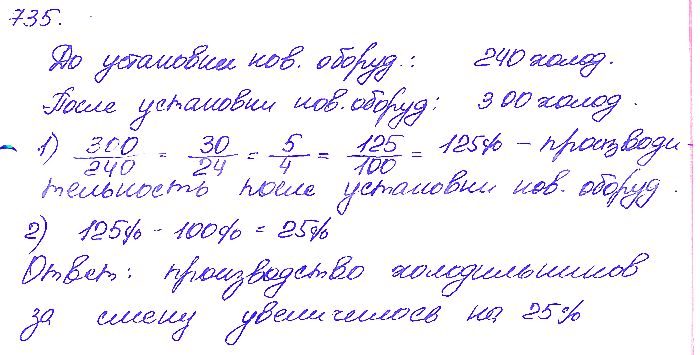 735.
До установки нов. оборуд.: 240 холод.
После установки нов. оборуд: 300 холод.
1) 300/240 = 30/24 = 5/4 = 125/100 = 125% - производи
тельность после установки нов. оборуд.
2) 125% - 100% = 25%
Ответ: производство холодильников
за смену увеличилось на 25%